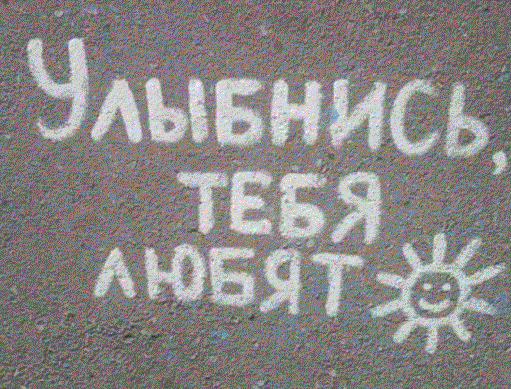 Улыбнись,
ТЕБЯ
ЛЮБЯТ